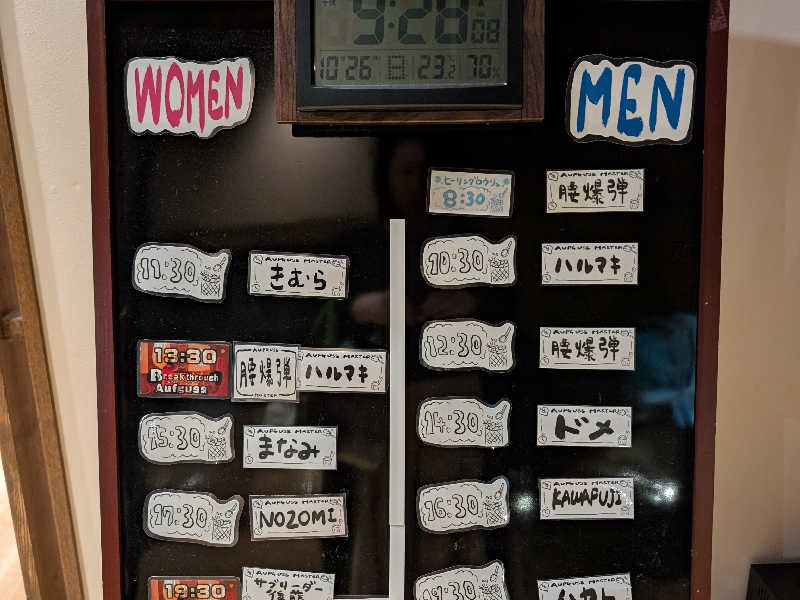 9:28 08
10 26 日 23.2 70%
WOMEN
MEN
11:30
AUFGUSS MASTER
きむら
13:30
Breakthrough
Aufguss
AUFGUSS
腰爆弾
MASTER
AUFGUSS MASTER
ハルマキ
15:30
AUFGUSS MASTER
まなみ
17:30
AUFGUSS MASTER
NOZOMI
19:30
AUFGUSS MASTER
サブリーダー
ヒーリングロウリュ
8:30
AUFGUSS MASTER
腰爆弾
10:30
AUFGUSS MASTER
ハルマキ
12:30
AUFGUSS MASTER
腰爆弾
14:30
AUFGUSS MASTER
ドメ
16:30
AUFGUSS MASTER
KAWAFUJI
AUFGUSS MASTER